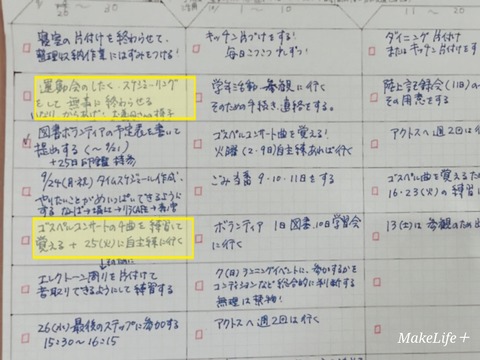 20 ~ 30
1 ~ 10
11 ~ 20
寝室の片付けを終わらせて、
整理収納作業にはずみをつける!
キッチン片づけをする!
毎日こつこつ
ダイニング 片付け
またはキッチン片付けをす
運動会のしたく・スケジューリング
をして 無事に終わらせる
学年活動 参観に行く
そのための手続き、連絡をする。
陸上記録会(11日)の
その用意をする
図書ボランティアの予定表を書いて
提出する(~9/21)
+25日
ゴスペルコンサート曲を覚える!
火曜(2・9日)自主練あれば行く
アクトスへ 週2回は行
9/24(月・祝) タイムスケジュール作成。
やりたいことがめいっぱいできるように
する
ごみ当番 9・10・11をする
ゴスペル曲を覚えるた
16・23(火)の練習に
ゴスペルコンサートの4曲を練習して
覚える + 25(火)に自主練に行く
ボランティア 1日図書、10日学習会
に行く
13(土)は参観のため
エレクトーン周りを片付けて
音取りできるようにして練習する
7(日)ランニングイベントに、参加するかを
コンディションなど総合的に判断する
無理は禁物!
26(水)最後のステップに参加する
15:30~16:15
アクトスへ週2回は行く
MakeLife+